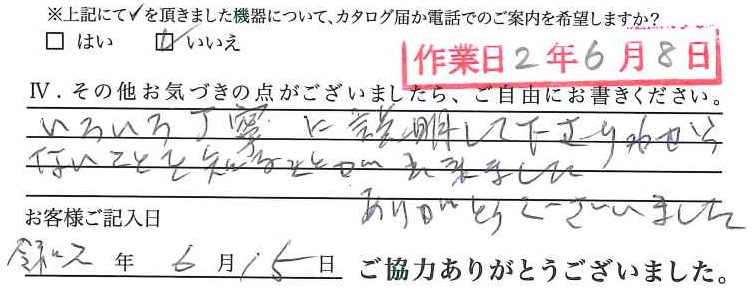 ※上記にて✓を頂きました機器について、カタログ届か電話でのご案内を希望しますか?
□ はい ☑ いいえ
作業日2年6月8日
Ⅳ．その他お気づきの点がございましたら、ご自由にお書きください。
いろいろ丁寧に説明して下さりわから
ないことを知ることが出来ました
ありがとうございました
お客様ご記入日
令和2年6月15日 ご協力ありがとうございました。